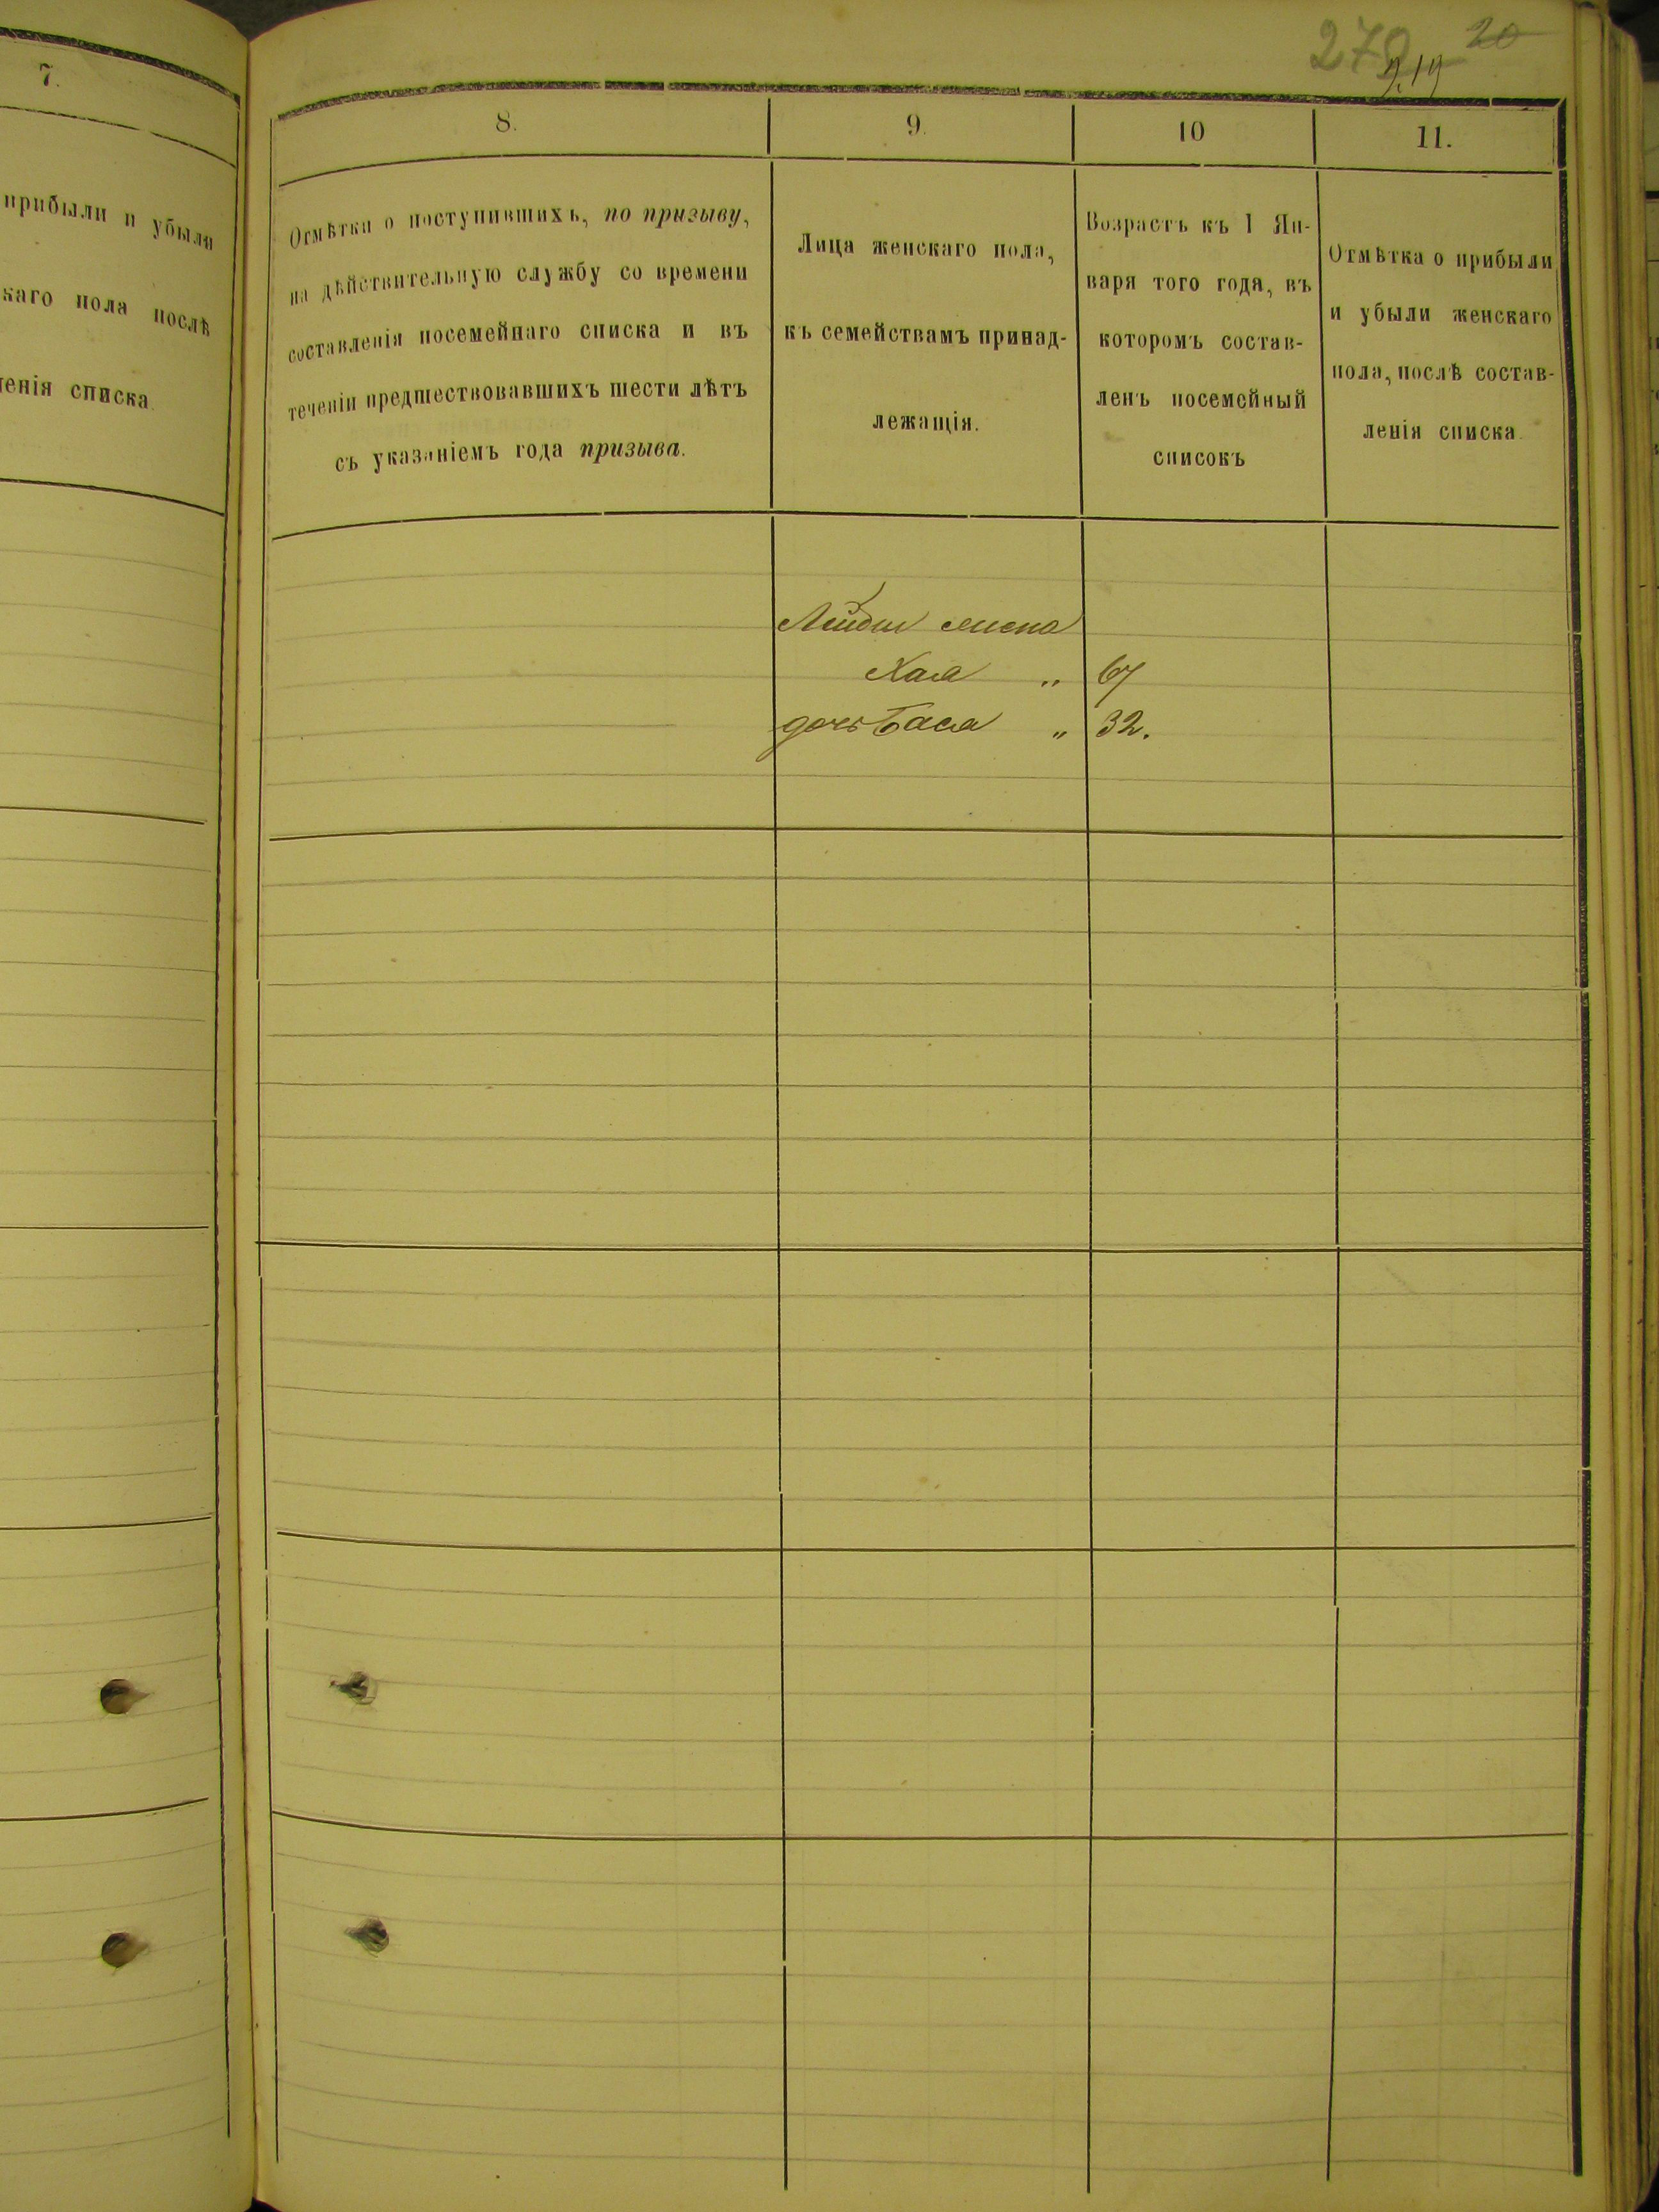 7.
прибыли и убыли
каго пола послѣ
ленія списка.
279 20
219
8.
Отмѣтки о поступившихъ, по призыву,
на дѣйствительную службу со времени
составленія посемейнаго списка и въ
теченіи предшествовавшихъ шести лѣтъ
съ указаніемъ года призыва.
9.
Лица женскаго пола,
къ семействамъ принад-
лежащія.
10
Возрастъ къ 1 Ян-
варя того года, въ
которомъ состав-
ленъ посемейный
списокъ
11.
Отмѣтка о прибыли
и убыли женскаго
пола, послѣ состав-
ленія списка.
жена
Хая „ 67
дочь Бася „ 32.